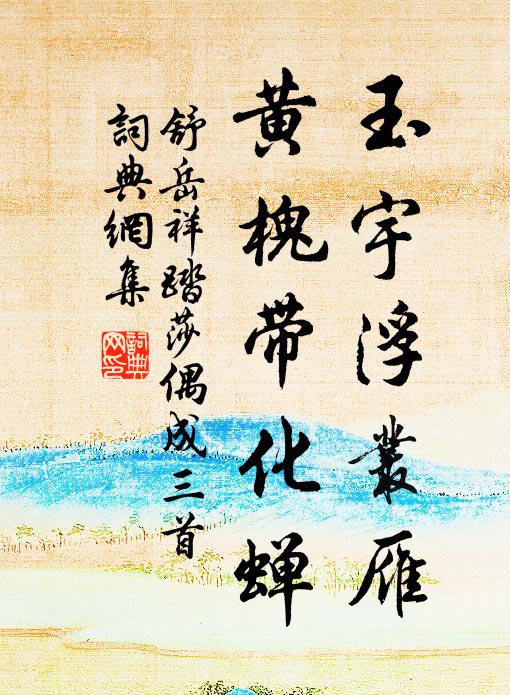 玉宇浮叢雁
黄槐带化蝉
舒岳祥踏莎偶成三首
詞典網集
詞典網印